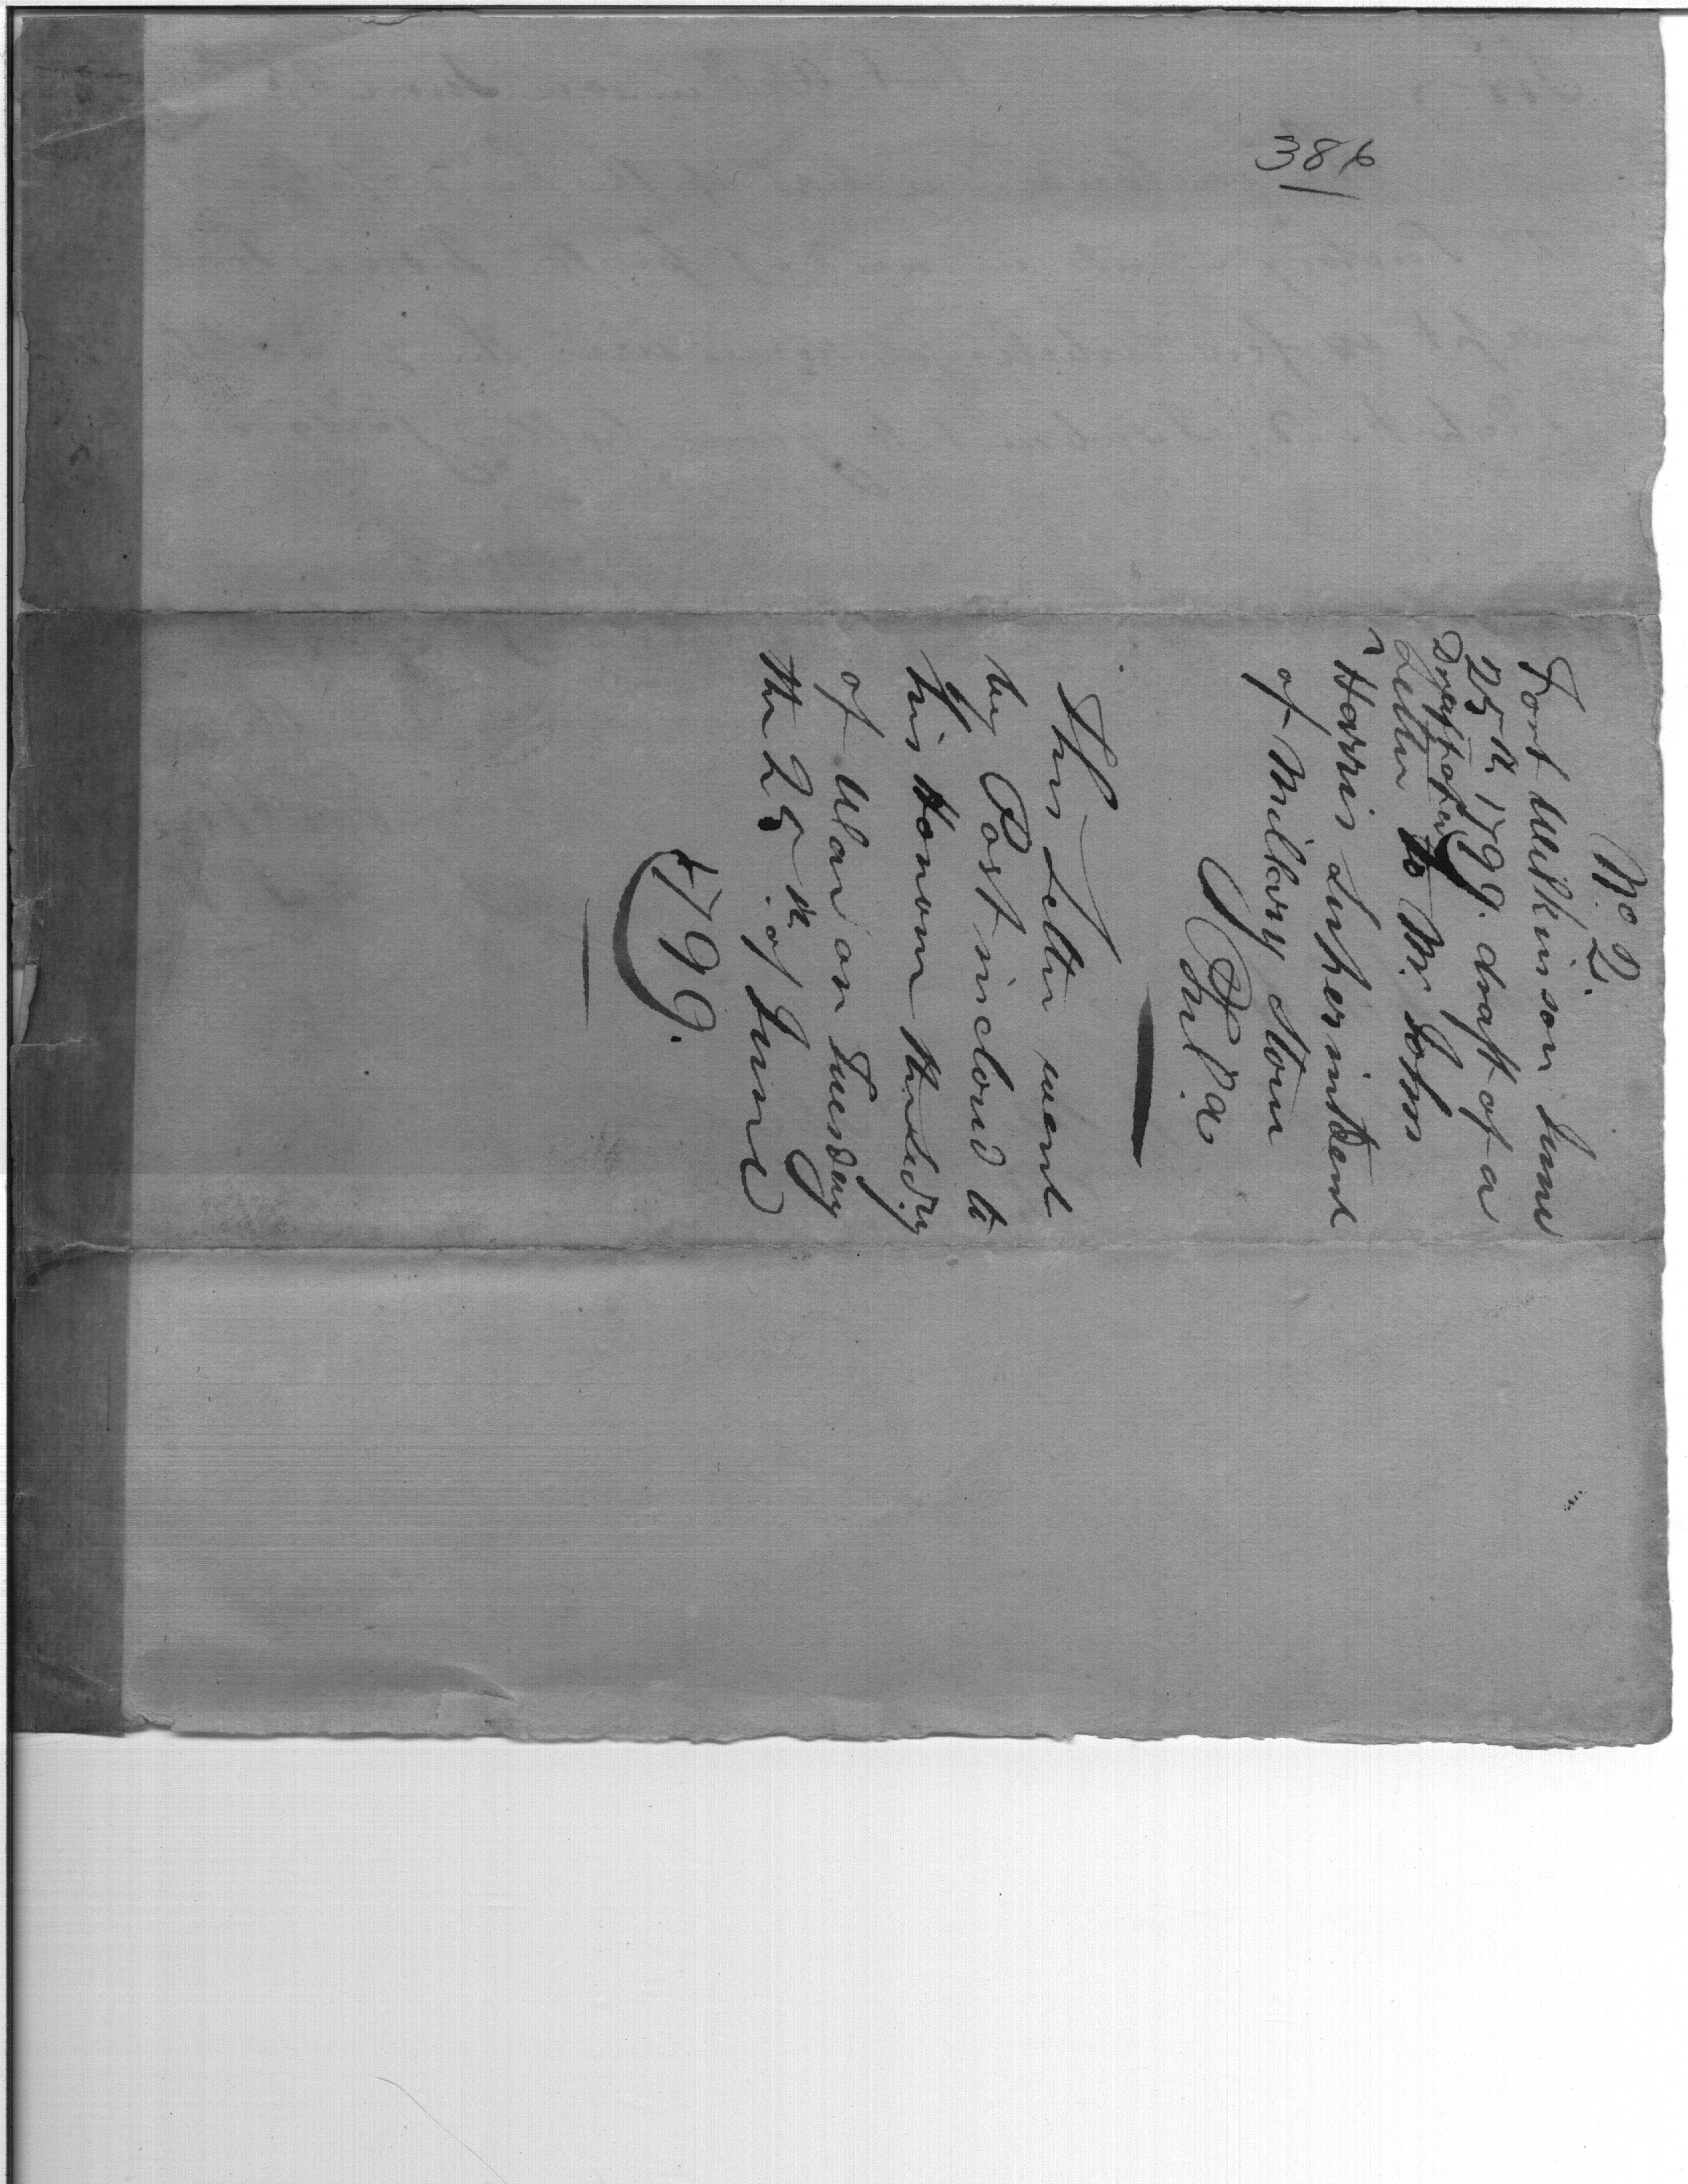 386
No. 2.
Fort Wilkinson June
25th. 1799. draft of a
Draft of a
Letter to Mr. John
Harris Superintdent
of Military Stores
Phila.
This Letter went
by Post inclosd to
his Honour the Secry
of War on Tuesday
the 25th. of June
1799.